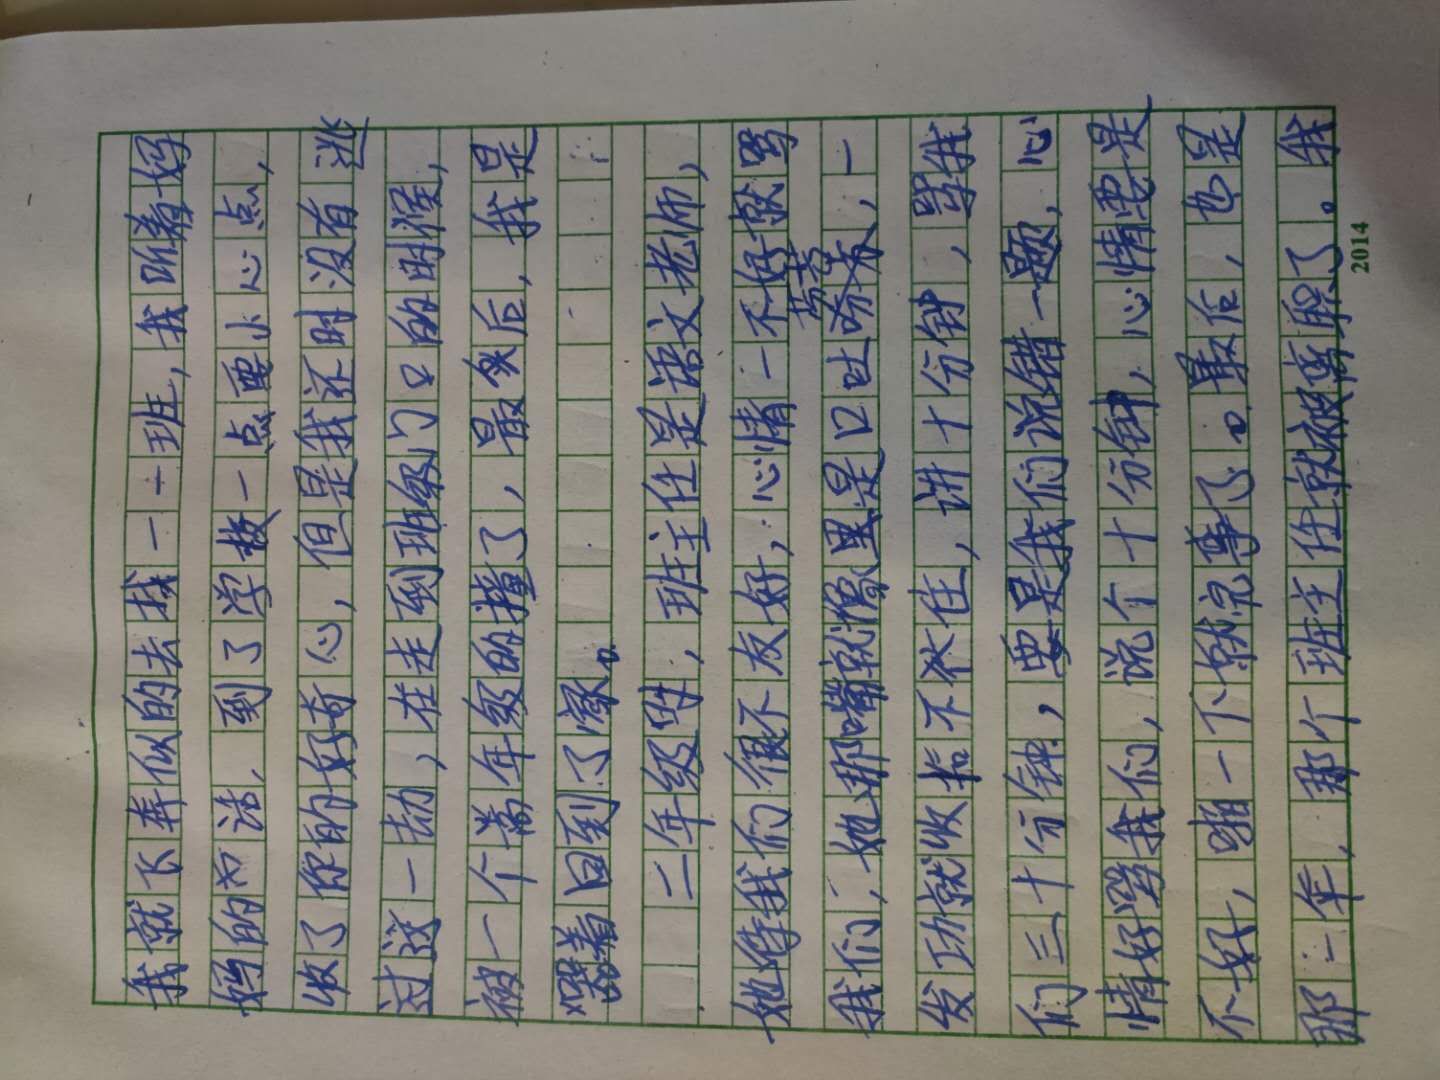 我就飞奔似的去找一十班，我听着妈
妈的话，到了学校一点要小心点，
收了你的好奇心，但是我还时没有逃
过这一劫，在走到班级门口的时候，
被一个高年级的撞了，最后，我是
哭着回到了家。
二年级时，班主任是语文老师，
她待我们很不友好，心情一不好就骂
我们，她那嘴就像里是口吐芬芳，一
发功就收拾不住，讲十分钟，骂我
们三十分钟，要是我们说错一题，心
情好骂我们，说个十分钟，心情要是
不好，啪一下就完事了。最后，也是
那一年，那个班主任就被离职了。我
2014